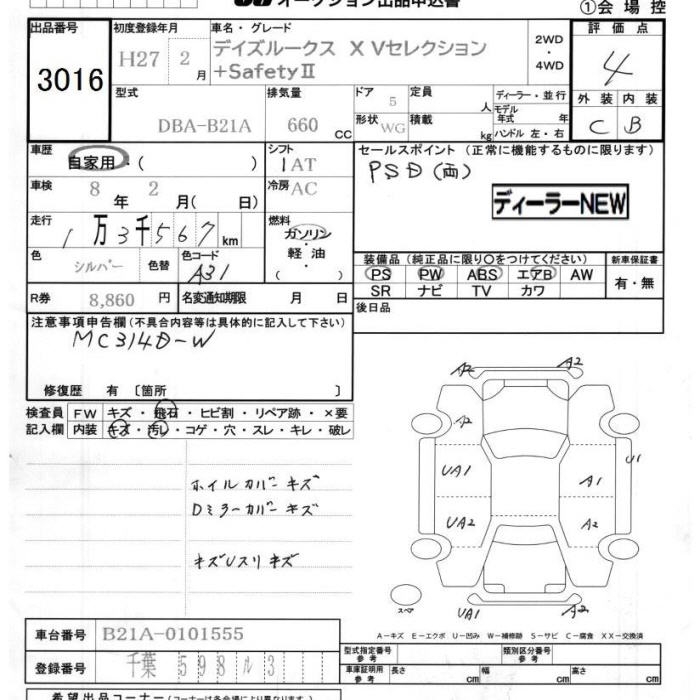 オークション出品申込書
①会場控
出品番号 初度登録年月 車名・グレード 評価点
3016 H27 2月 デイズルークス X Vセレクション +SafetyⅡ 2WD・4WD 4
型式 排気量 ドア 5 定員 人 ディーラー・並行 外装 内装
DBA-B21A 660 CC 形状 WG 積載 kg モデル年式 年 ハンドル 左・右 C B
車歴 自家用・( ) シフト 1AT セールスポイント (正常に機能するものに限ります)
PSD(両)
車検 8年 2月( 日) 冷房 AC
ディーラーNEW
走行 1万3千567km 燃料 ガソリン・軽油・( )
色 シルバー 色替 色コード A31
装備品 (純正品に限り○をつけてください) 新車保証書
PS PW ABS エアB AW 有・無
SR ナビ TV カワ
R券 8,860 円 名変通知期限 月 日 後日品
注意事項申告欄 (不具合内容等は具体的に記入して下さい)
MC314D-W
修復歴 有 〔箇所 〕
検査員 FW キズ・飛石・ヒビ割・リペア跡・×要
記入欄 内装 キズ・汚レ・コゲ・穴・スレ・キレ・破レ
A2 A2
A2
U1
UA1 A1
UA2 A2
ホイルカバーキズ
Dミラーカバーキズ
キズUスリキズ
スペア
UA1 A2
A－キズ E－エクボ U－凹み W－補修跡 S－サビ C－腐食 XX－交換済
車台番号 B21A-0101555
登録番号 千葉 598 ル 3
型式指定番号 参考 類別区分番号 参考
車庫証明用 参考 長さ cm 幅 cm 高さ cm
希望出品コーナー (コーナーは各会場により異なります。)